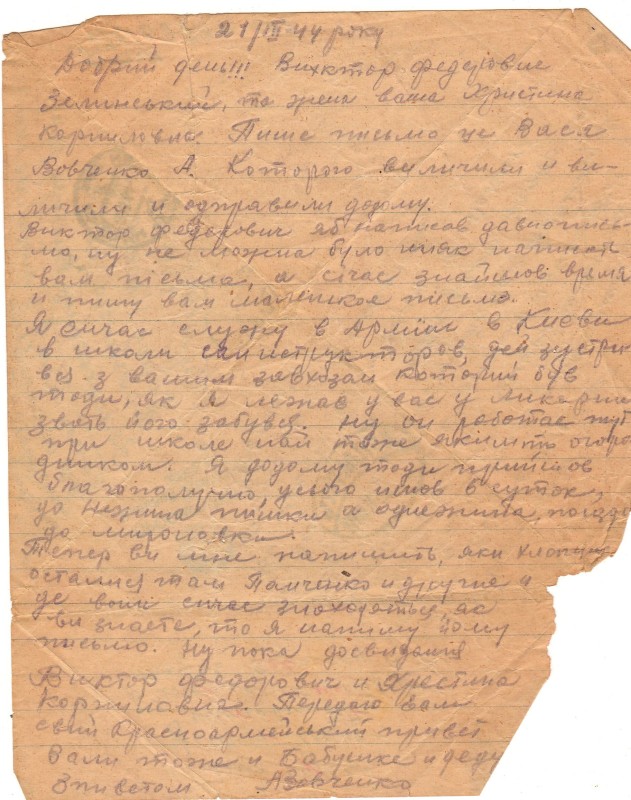 21/III 44 року
Добрий день!!! Вихктор федерович
Зелинський, та жена ваша Христина
Корниловна. Пише письмо це Вася
Вовченко А. Которого виличили и ви-
личили и одправили додому.
Виктор федерович я б написов давно пись-
мо, ну не можна було нияк написать
вам письма, а сичас знайшов время
и пишу вам маленькое письмо.
Я сичас служу в Армии в Києви
в школи санструкторов, де й зустри-
вся з вашим завхозам которий був
тоди, як я лежав у вас у ликарни
звать його забувся. Ну он работає тут
при школе най тоже якимсь огоро-
дником. Я додому тоди прийшов
благополучно, усього ишов 8 суток
до Нежина пишки а од нежина поездо
до мироновки.
Тепер ви мне напишить, яки хлопци
осталися там Панченко и другие и
де вони сичас знаходяться, як
ви знаєте, то я напишу йому
письмо. Ну пока досвидания
Виктор федорович и Хрестина
Корниловна. Передаю вам
свий Красноармейський привет
Вам тоже и Бабушке и деду
З приветом АВовченко